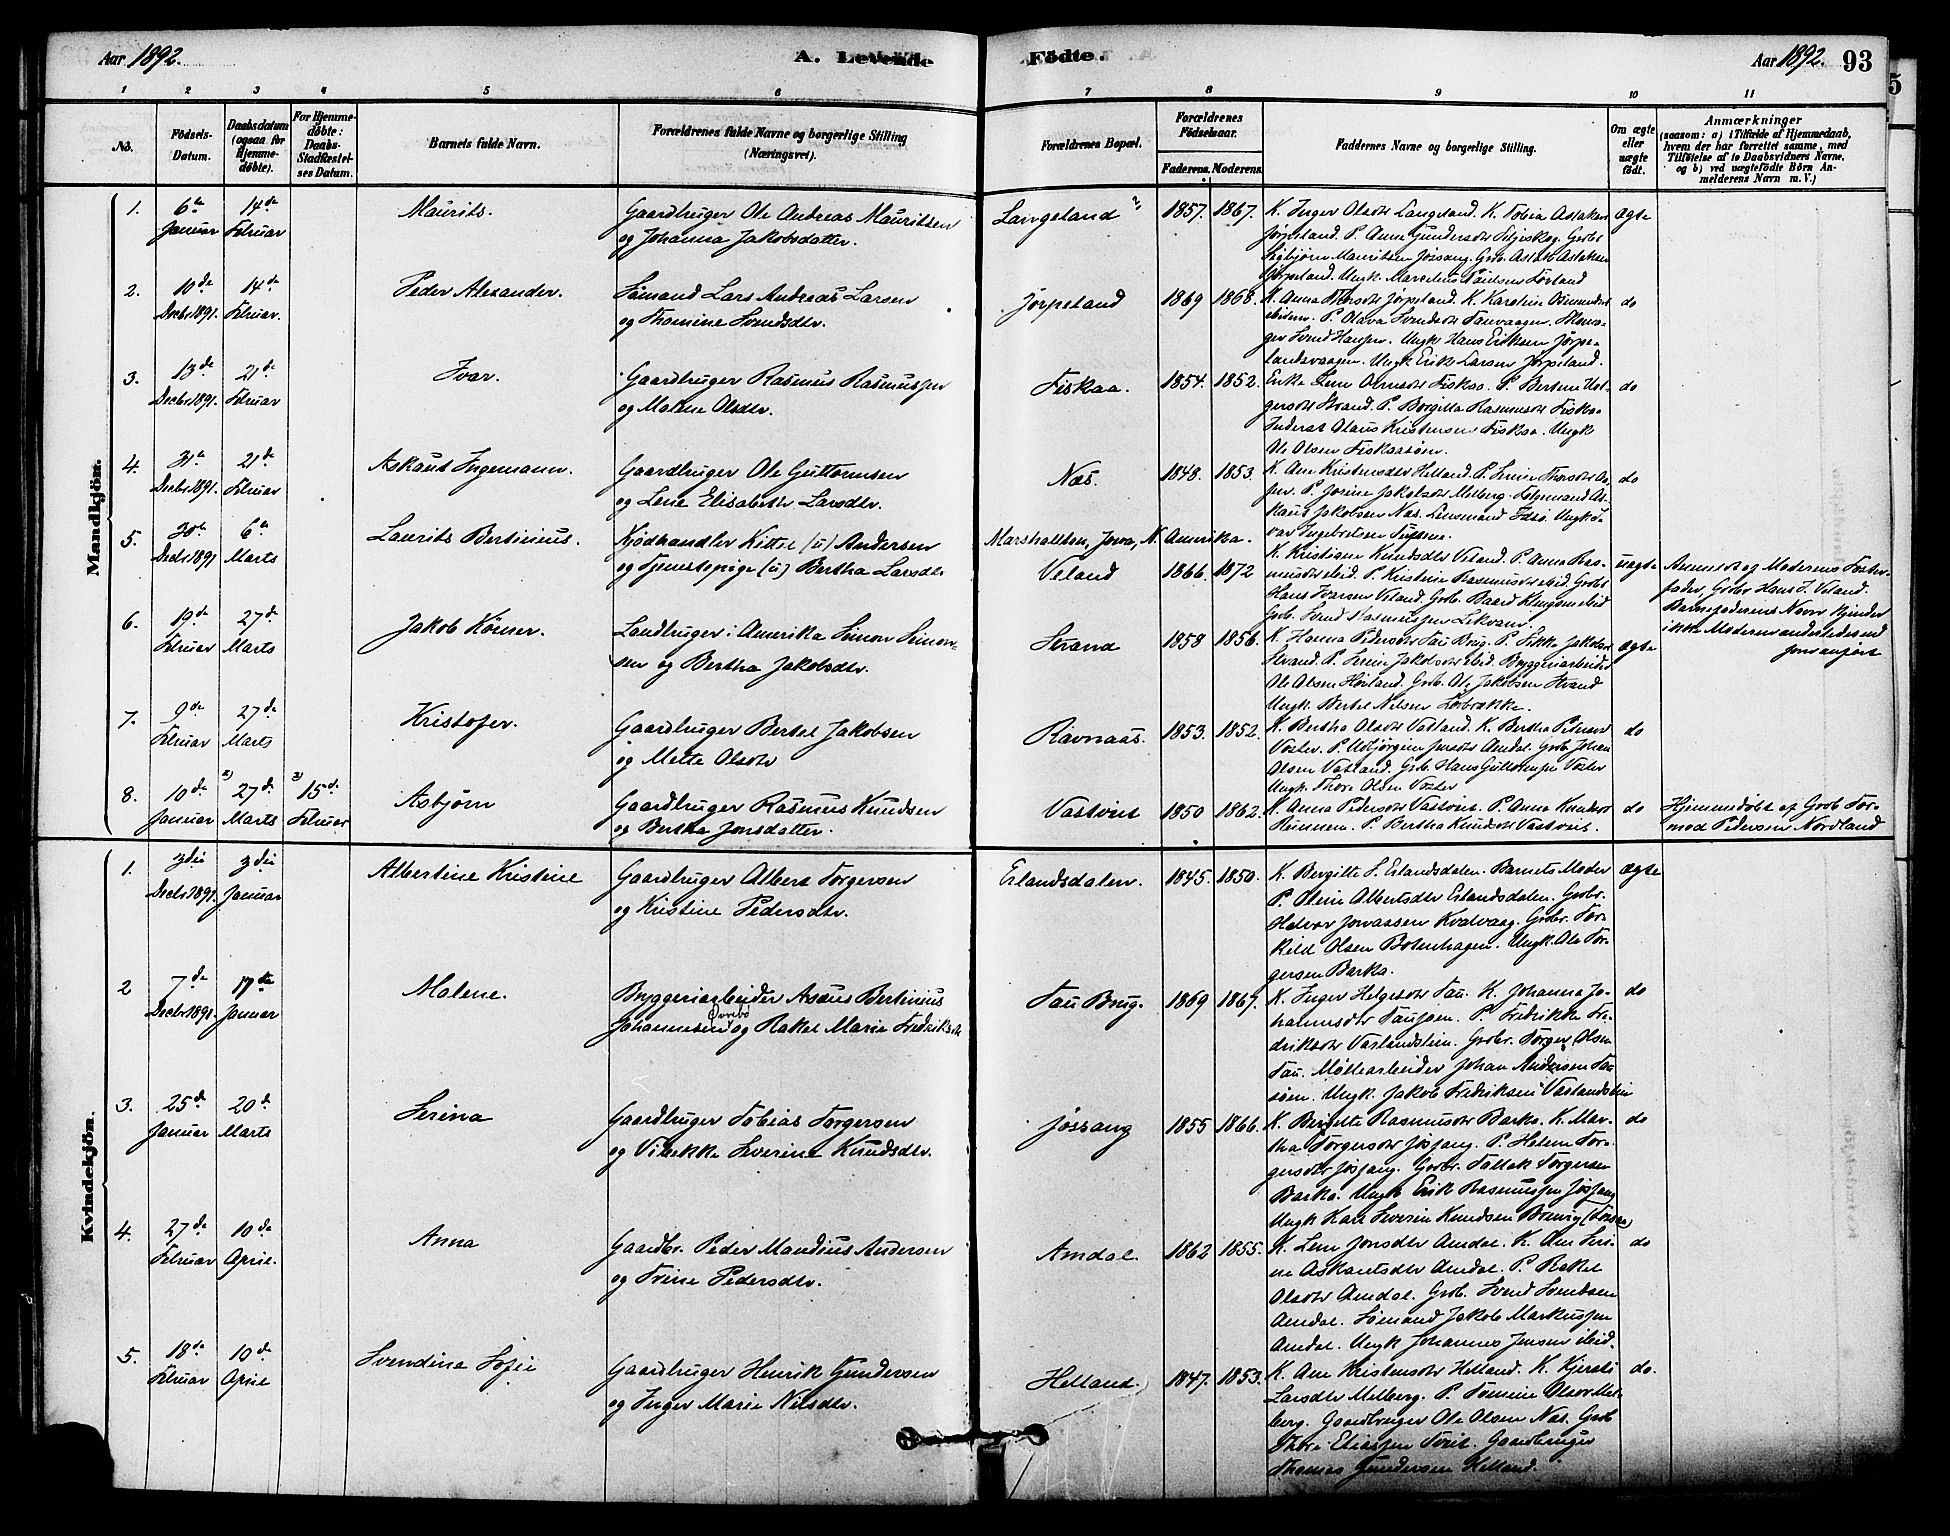 Aar 1892.
A. Levende
Fødte.
Aar 1892. 93
1 2 3 4 5 6 7 8 9 10 11
No. Fødsels-Datum. Daabsdatum (ogsaa for Hjemmedøbte). For Hjemmedøbte: Daabs-Stadfæstelses Datum. Barnets fulde Navn. Forældrenes fulde Navne og borgerlige Stilling (Næringsvei). Forældrenes Bopæl. Forældrenes Fødselsaar. Faderens. Moderens. Faddernes Navne og borgerlige Stilling. Om ægte eller uægte født. Anmærkninger (saasom: a) i Tilfælde af Hjemmedaab, hvem der har forrettet samme, med Tilføielse af to Daabsvidners Navne, og b) ved uægtefødte Børn Anmelderens Navn m. V.)
Mandkjön.
1. 6te Januar 14de Februar Maurits. Gaardbruger Ole Andreas Mauritsen
og Johanna Jakobsdatter. Langeland 1857. 1867. K. Inger Olsdtr Langeland. K. Tobia Aslaksn ægte
Jørpeland. P. Anne Gundersdtr Geitskog. Grdbr
Sigbjørn Mauritsen Jøssang. Grdb. Aslak Aslaksen
Jørpeland. Ungk. Marselius Paulsen Førland
2. 10de Decbr 1891. 14de Februar. Peder Alexander. Sømand Lars Andreas Larsen
og Thomine Svendsdtr. Jørpeland 1869 1868. K. Anna Thorsdtr Jørpeland. K. Karoline Osmundsd do
ibidem. P. Olava Svendsdtr Tauvaagen.
Svend Hansen. Ungk Hans Eriksen Jørpe-
landsvaagen. Ungk Erik Larsen Jørpeland.
3. 13de Decbr 1891. 21de Februar Ivar. Gaardbruger Rasmus Rasmussen
og Malene Olsdtr. Fiskaa. 1854. 1852. Enke Lene Olsdtr Fiskaa. P. Bertine Hol- do
gersdtr Strand. P. Borgilla Rasmusdtr Fiskaa
Inderst Olaus Kristensen Fiskaa. Ungk
Ole Olsen Fiskaasøen.
4. 31te Decbr 1891. 21de Februar Askaut Ingemann. Gaardbruger Ole Guttormsen
og Lene Elisabeth Larsdtr. Næs. 1848. 1853. K. Ane Kristensdtr Helland. P. Serine Thorsdtr do
P. Josine Jakobsdtr Melberg. Følgemand As-
kaut Jakobsen Næs. Lensmand Ungk
Ingebretsen
5. 30te Decbr 1891 6te Marts Laurits Bertinius. Kjødhandler Kittel (u) Andersen
og Tjenestepige (u) Bertha Larsdtr Marshalltown, Jowa, N. Amerika.
Veland 1866. 1872 K. Kristiane Knudsdtr Veland. P. Anna Ras- uægte
musdtr ibid. P. Kristine Rasmusdtr ibid. Grdbr
Hans Ivarsen Veland. Grdb. Baard Klungsen ibid
Grdb. Svend Rasmussen Lekvam.
Anmeldt af Moderens Foster-
fader, Grdbr Hans I. Veland.
Barnefaderens Navn kjender
ikke Moderen anderledes end
som anført
6. 19de Februar 27de Marts Jakob Kôhner. Landbruger i Amerika Simon Simon-
sen og Bertha Jakobsdtr. Strand 1858 1856. K. Hanna Pedersdtr Tau Brug. P. Sikke Jakobsdtr ægte
Strand. P. Serine Jakobsdtr ibid. Bryggeriarbeider
Ole Olsen Høiland. Grdb. Ole Jakobsen Strand
Ungk. Bertel Nilsen Lerbrække.
7. 9de Februar 27de Marts Kristofer. Gaardbruger Bertel Jakobsen
og Mette Olsdtr Ravnaas. 1853. 1852. K. Bertha Olsdtr Vatland. K. Bertha Peters do
Voster. P. Udbjørgine Jensdtr Amdal. Grdb. Johan
Olsen Vatland. Grdb. Hans Guttormsen Voster
Ungk. Thore Olsen Voster
8. 10de Januar 27de Marts 15de Februar Asbjørn Gaardbruger Rasmus Knudsen
og Bertha Jonsdatter. Vastveit 1850 1862. K. Anna Pedersdtr Vastveit. P. Anna Knudsdtr do
Runnen. P. Bertha Knudsdtr Vastveit.
Hjemmedøbt af Grdb Tor-
mod Pedersen Nordland
Kvindekjön.
1. 3die Decbr 1891. 3die Januar Albertine Kristine Gaardbruger Albert Torgersen
og Kristine Pedersdtr. Erlandsdalen. 1845. 1850. K. Bergitte S. Erlandsdalen. Barnets Moder ægte
P. Oleine Albertsdtr Erlandsdalen. Grdbr.
Halvor Jonassen Kvalvaag. Grdbr. Tor-
kild Olsen Botenhagen. Ungk. Ole Tor-
gersen Barka.
2 7de Decbr 1891. 17de Januar Malene. Bryggeriarbeider Asaus Bertinius
Johannesen og Rakel Marie Fredriksdtr Tau Brug. 1869 1867. K. Inger Helgesdtr Tau. K. Johanna Jo- do
hannesdtr Tausøen. P. Fredrikke Fre-
driksdtr Vatlandstein. Grdbr. Torger Olsen
Tau. Møllearbeider Johan Andersen Tau
søen. Ungk. Jakob Fredriksen Vatlandstein
3. 25de Januar 20de Marts Serina Gaardbruger Tobias Torgersen
og Vibekke Severine Knudsdtr. Jøssang 1855 1866. K. Bergitte Rasmusdtr Barka. K. Mar- do
tha Torgersdtr Jøssang. P. Helene Tor-
gersdtr Jøssang. Grdbr. Tollak Torgersen
Barka. Ungk Erik Rasmussen Jøssang
Ungk Karl Severin Knudsen Breivig (Fossan)
4. 27de Februar 10de April. Anna Gaardbr. Peder Mandius Andersen
og Trine Pedersdtr. Amdal. 1862 1855. K. Lene Jonsdtr Amdal. K. Ane Seri- do
ne Askautsdtr Amdal. P. Rakel
Olsdtr Amdal. Grdb. Svend Svendsen
Amdal. Sømand Jakob Markussen
Amdal. Ungk Johannes Jensen ibid.
5. 18de Februar 10de April Svendina Sofie Gaardbruger Henrik Gundersen
og Inger Marie Nilsdtr. Helland. 1847. 1853. K. Ane Kristensdtr Helland. K. Kjersti do.
Larsdtr Melberg. P. Tomine Olsdtr Mel-
berg. Gaardbruger Ole Olsen Næs. Grdb
Thore Eliassen Tveit. Gaardbruger
Thomas Gundersen Helland.